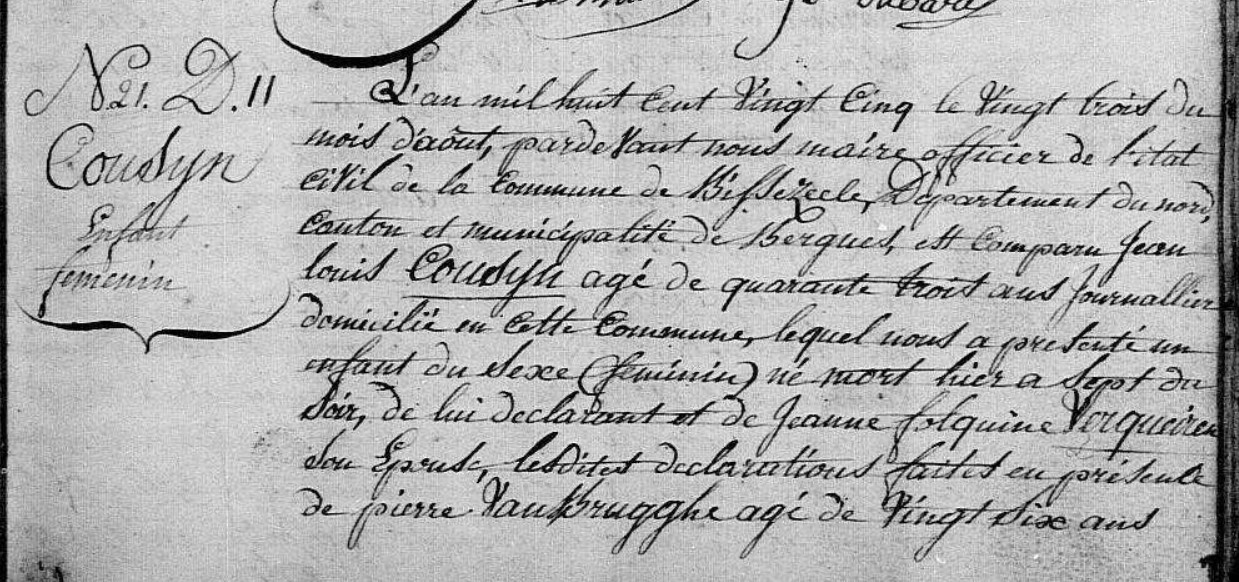 N 21. D. 11
Cousyn
Enfant
femenin
L'an mil huit Cent Vingt Cinq le Vingt trois du
mois d'aout, pardevant nous maire officier de l'etat
civil de la Commune de Bissezeele, Département du nord,
canton et municipalité de Bergues, est Comparu Jean
louis Cousyn agé de quarante trois ans Journallier
domicilié en cette Commune, lequel nous a presenté un
enfant du sexe (feminin) né mort hier a Sept du
Soir, de lui declarant et de Jeanne folquine Verqueiren
son Epouse, lesdites declarations faites en présence
de pierre VanBrugghe agé de Vingt Six ans